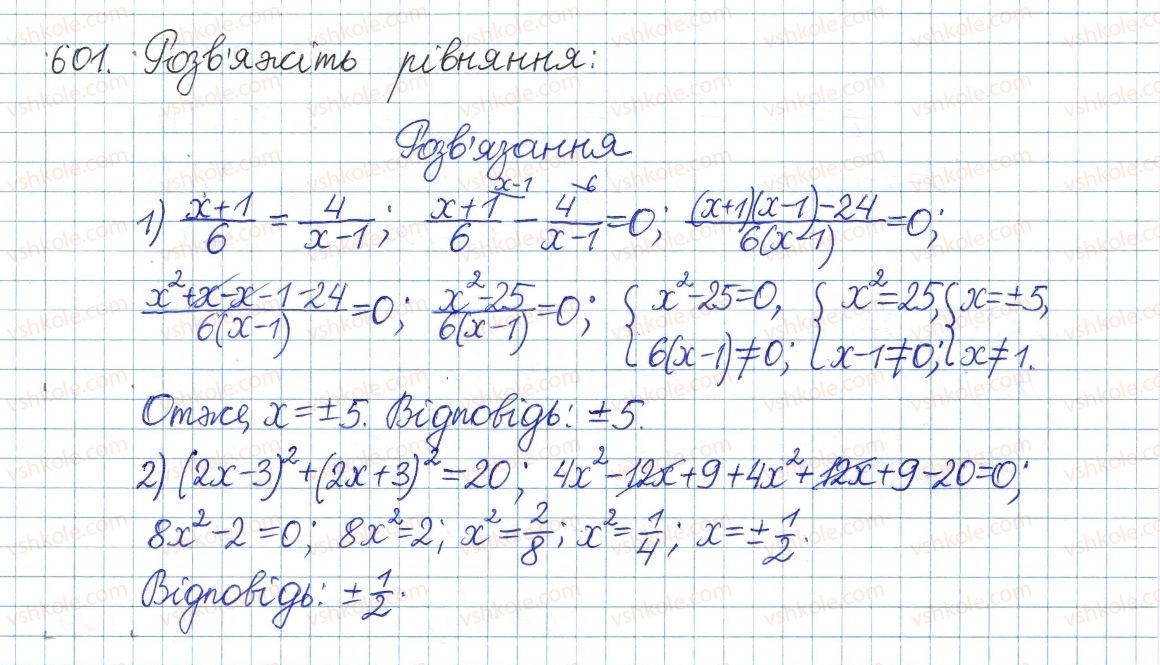 601. Розв'яжіть рівняння:
Розв'язання
1) (x+1)/6 = 4/(x-1); (x+1)/6 ^(x-1) - 4/(x-1) ^6 = 0; ((x+1)(x-1)-24)/(6(x-1)) = 0;
(x²+x-x-1-24)/(6(x-1)) = 0; (x²-25)/(6(x-1)) = 0; { x²-25=0, 6(x-1)≠0; { x²=25, x-1≠0; { x=±5, x≠1.
Отже, x=±5. Відповідь: ±5.
2) (2x-3)²+(2x+3)²=20; 4x²-12x+9+4x²+12x+9-20=0;
8x²-2=0; 8x²=2; x²=2/8; x²=1/4; x=±1/2.
Відповідь: ±1/2.